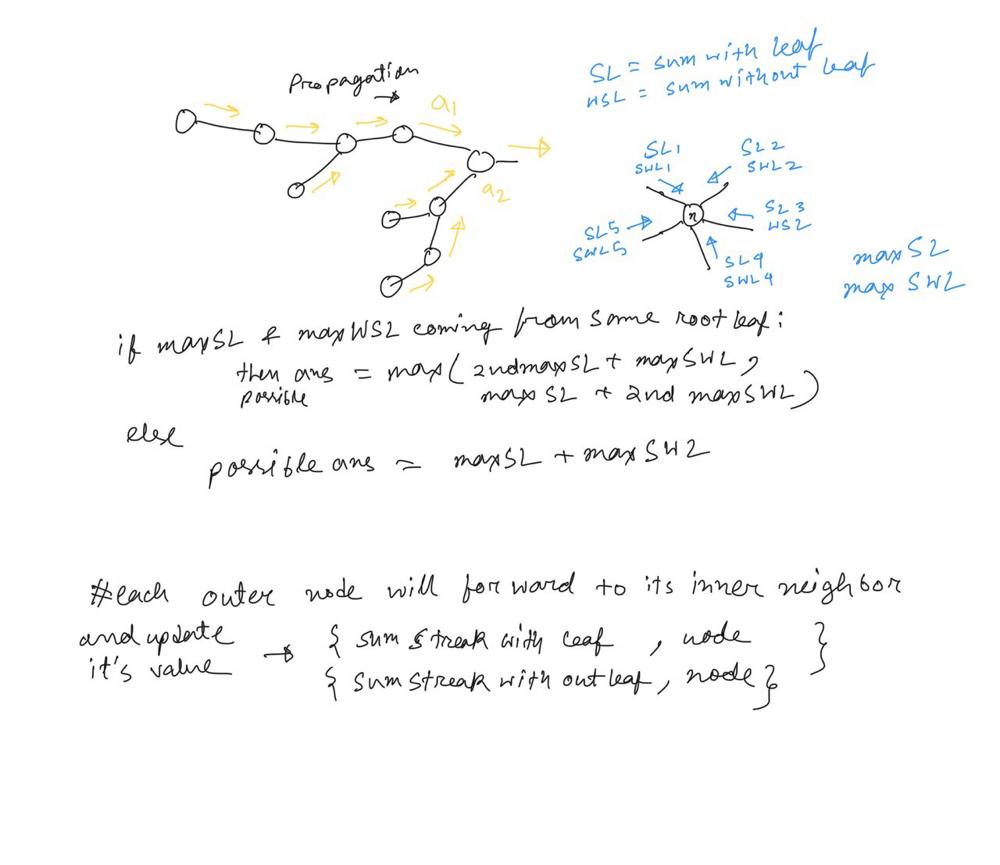 Propagation
a1
a2
SL = sum with leaf
WSL = sum without leaf
SL1
SWL1
SL2
SWL2
SL3
WS2
SL4
SWL4
SL5
SWL5
n
max SL
max SWL
if maxSL & maxWSL coming from same root leaf :
then ans = max( 2ndmaxSL + maxSWL ,
possible maxSL + 2nd maxSWL )
else
possible ans = maxSL + maxSWL
#each outer node will forward to its inner neighbor
and update → { sum streak with leaf , node }
it's value { sum streak with out leaf, node }